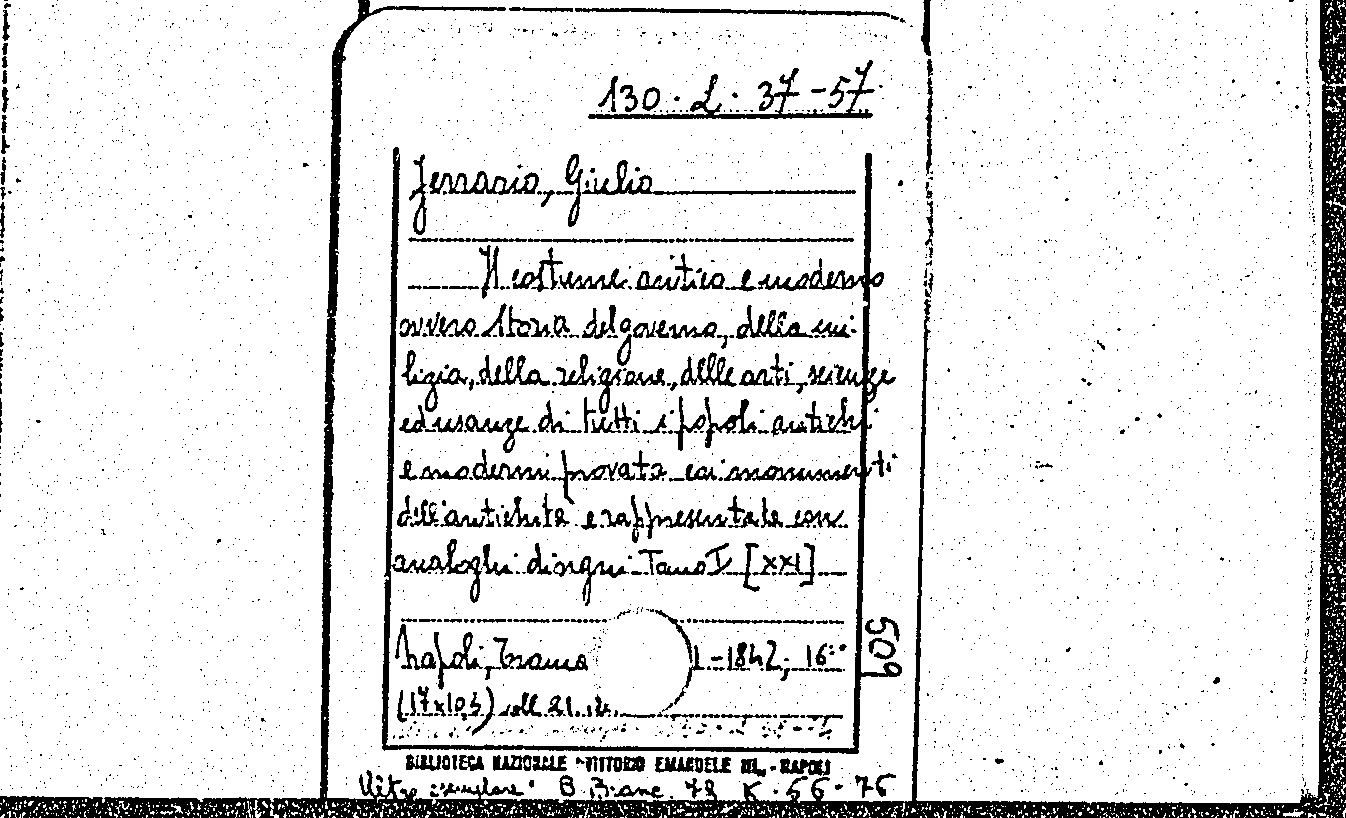 130 · L · 37-57
Ferrario, Giulio
Il costume antico e moderno
ovvero storia del governo, della mi-
lizia, della religione, delle arti, scienze
ed usanze di tutti i popoli antichi
e moderni provata coi monumenti
dell'antichità e rappresentata con
analoghi disegni Tomo I [XXI]
Napoli, Trama 1-1842; 16°
(17x10,5) voll. 21.
509
BIBLIOTECA NAZIONALE "VITTORIO EMANUELE III" - NAPOLI
Altro esemplare: B. Branc. 72 K. 56-76